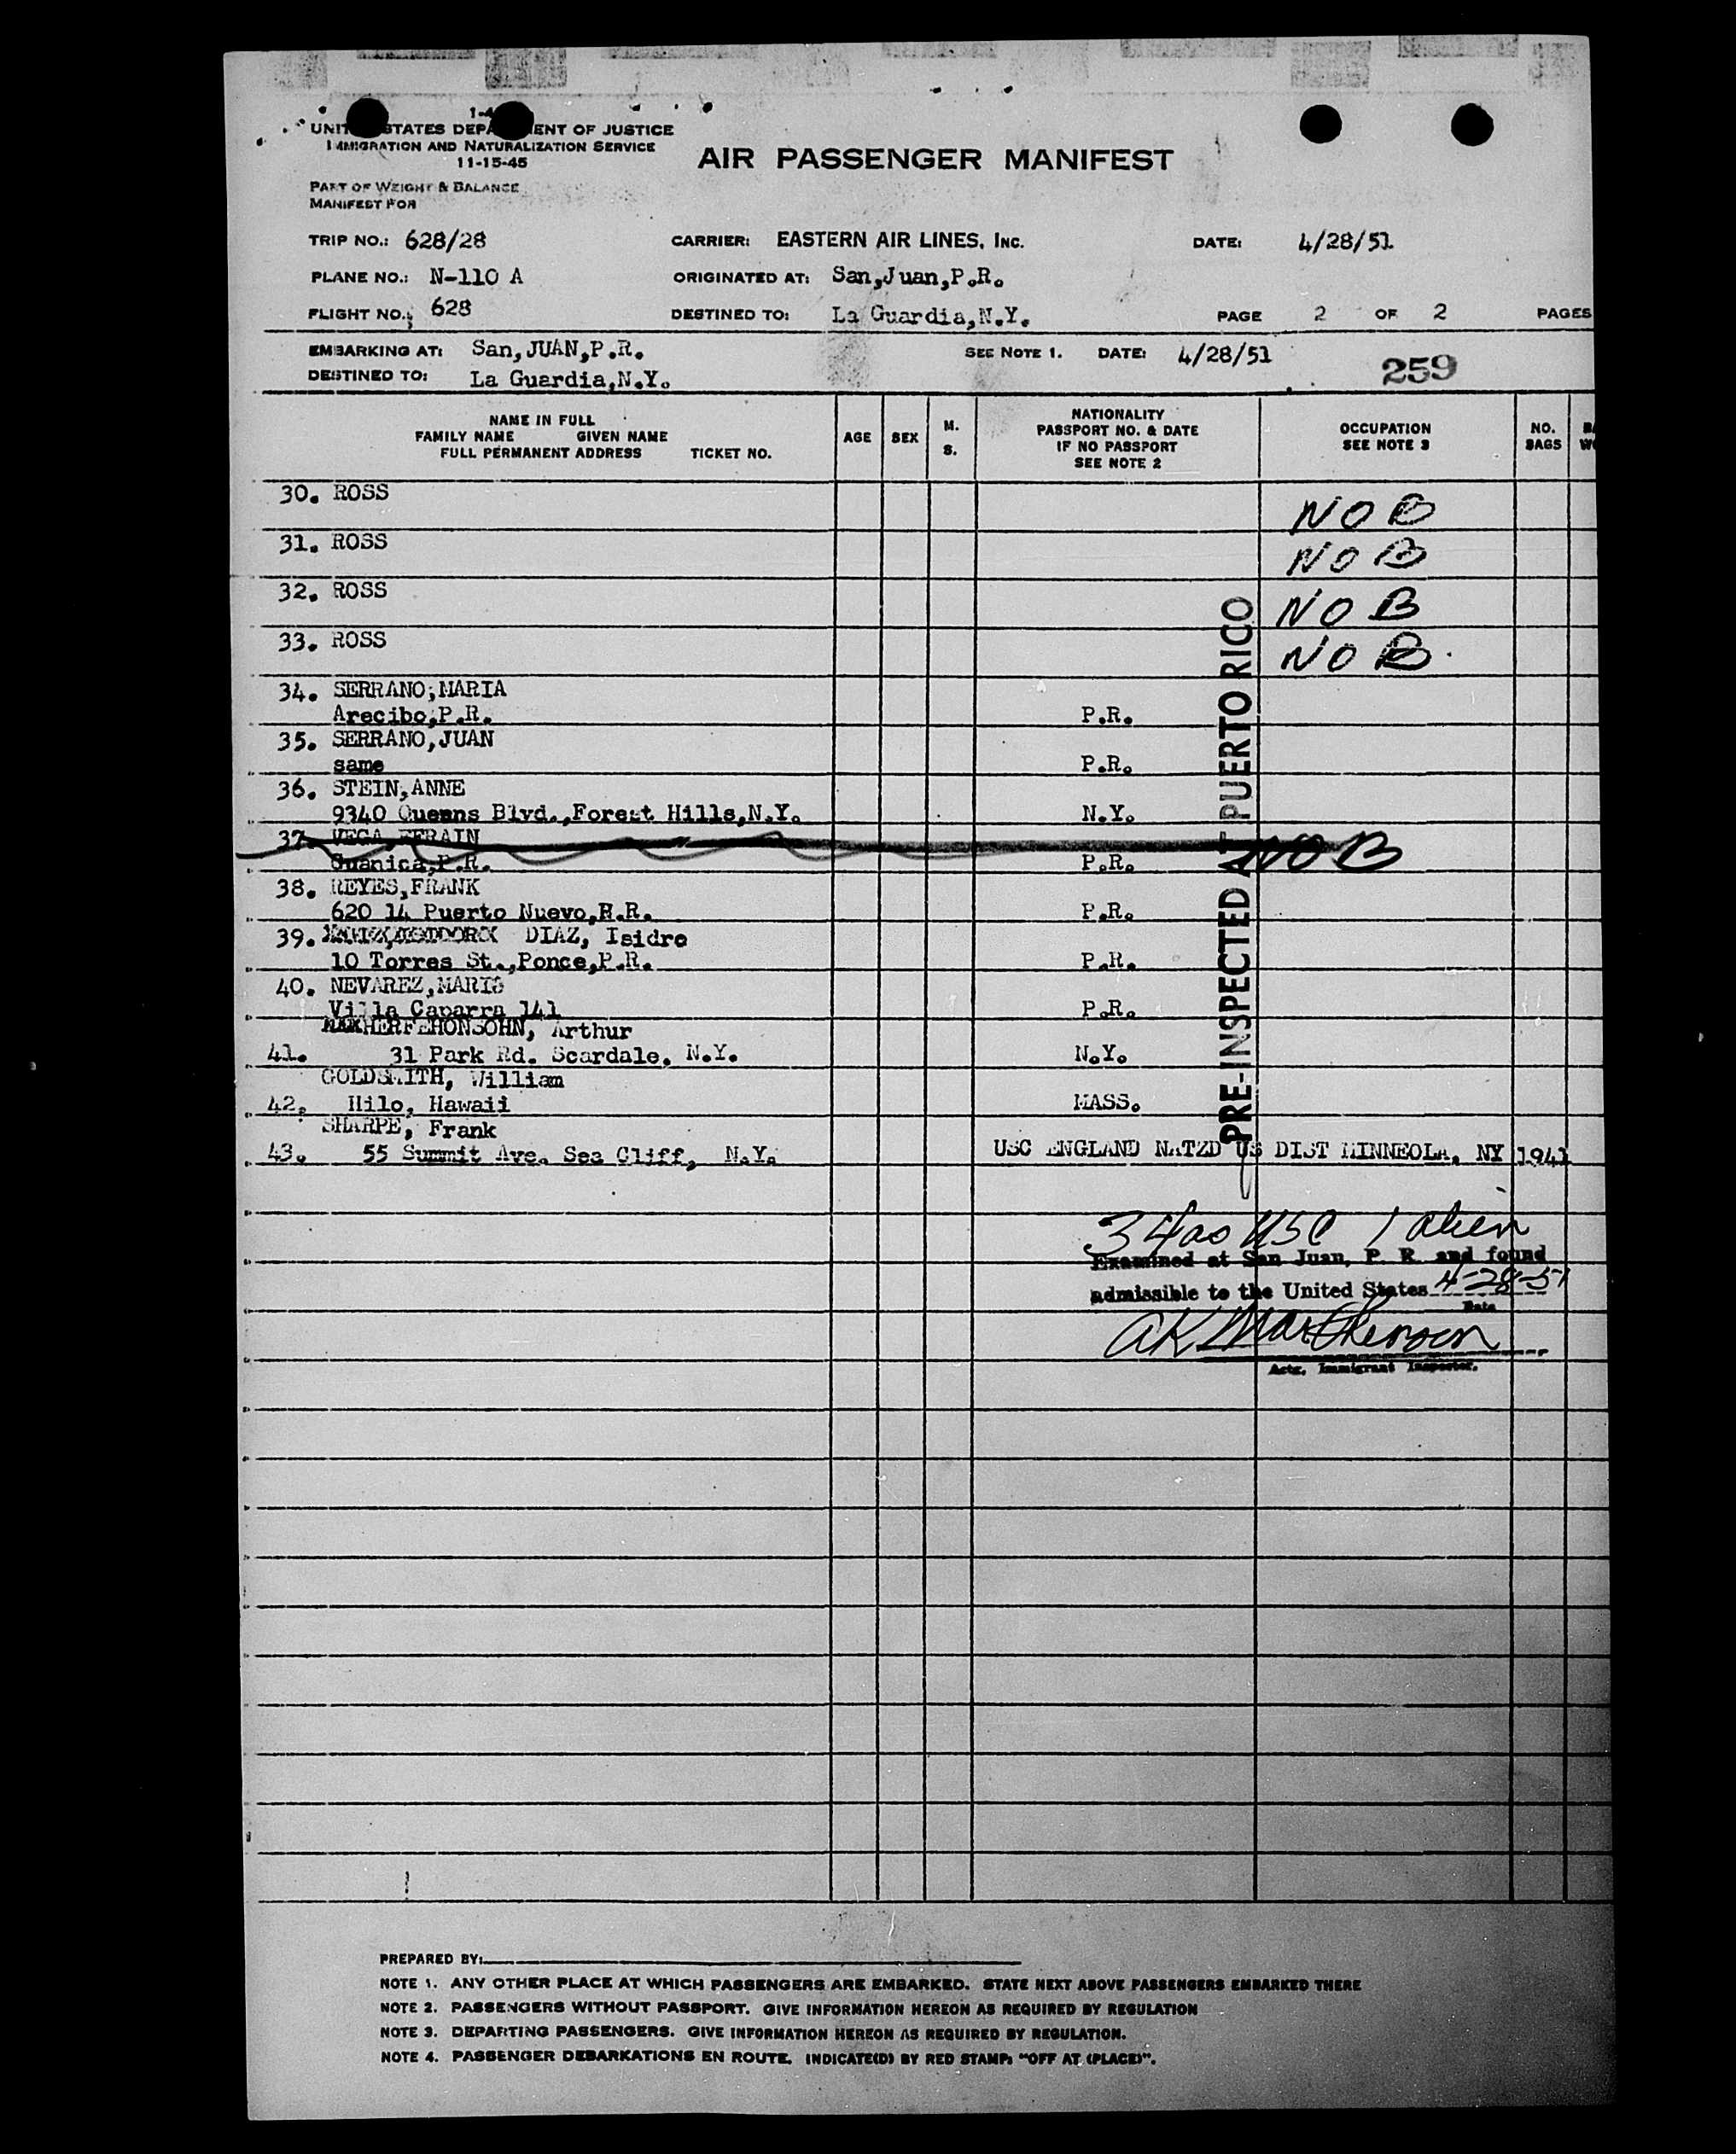 1-4
UNITED STATES DEPARTMENT OF JUSTICE
IMMIGRATION AND NATURALIZATION SERVICE
11-15-45
AIR PASSENGER MANIFEST
PART OF WEIGHT & BALANCE
MANIFEST FOR
TRIP NO.: 628/28 CARRIER: EASTERN AIR LINES, INC. DATE: 4/28/51
PLANE NO.: N-110 A ORIGINATED AT: San,Juan,P.R.
FLIGHT NO.: 628 DESTINED TO: La Guardia,N.Y. PAGE 2 OF 2 PAGES
EMBARKING AT: San,JUAN,P.R. SEE NOTE 1. DATE: 4/28/51
DESTINED TO: La Guardia,N.Y. 259
NAME IN FULL
FAMILY NAME GIVEN NAME
FULL PERMANENT ADDRESS TICKET NO.
AGE SEX M. S.
NATIONALITY
PASSPORT NO. & DATE
IF NO PASSPORT
SEE NOTE 2
OCCUPATION
SEE NOTE 3
NO.
BAGS
30. ROSS NOB
31. ROSS NOB
32. ROSS NOB
33. ROSS NOB
34. SERRANO,MARIA
Arecibo,P.R. P.R.
35. SERRANO,JUAN
same P.R.
36. STEIN,ANNE
9340 Queens Blvd.,Forest Hills,N.Y. N.Y.
37. VEGA EFRAIN
Guanica,P.R. P.R. NOB
38. REYES,FRANK
620 14 Puerto Nuevo,P.R. P.R.
39. DIAZ, Isidro
10 Torres St.,Ponce,P.R. P.R.
40. NEVAREZ,MARIS
Villa Caparra 141 P.R.
Arthur
41. 31 Park Rd. Scardale, N.Y. N.Y.
GOLDSMITH, William
42. Hilo, Hawaii MASS.
SHARPE, Frank
43. 55 Summit Ave. Sea Cliff, N.Y. USC ENGLAND NATZD US DIST MINNEOLA, NY 1941
PRE-INSPECTED AT PUERTO RICO
34 as USC 1 alien
Examined at San Juan, P. R. and found
admissible to the United States 4-28-51
Date
Actg. Immigrant Inspector.
PREPARED BY:
NOTE 1. ANY OTHER PLACE AT WHICH PASSENGERS ARE EMBARKED. STATE NEXT ABOVE PASSENGERS EMBARKED THERE
NOTE 2. PASSENGERS WITHOUT PASSPORT. GIVE INFORMATION HEREON AS REQUIRED BY REGULATION
NOTE 3. DEPARTING PASSENGERS. GIVE INFORMATION HEREON AS REQUIRED BY REGULATION.
NOTE 4. PASSENGER DEBARKATIONS EN ROUTE. INDICATE(D) BY RED STAMP: "OFF AT (PLACE)".